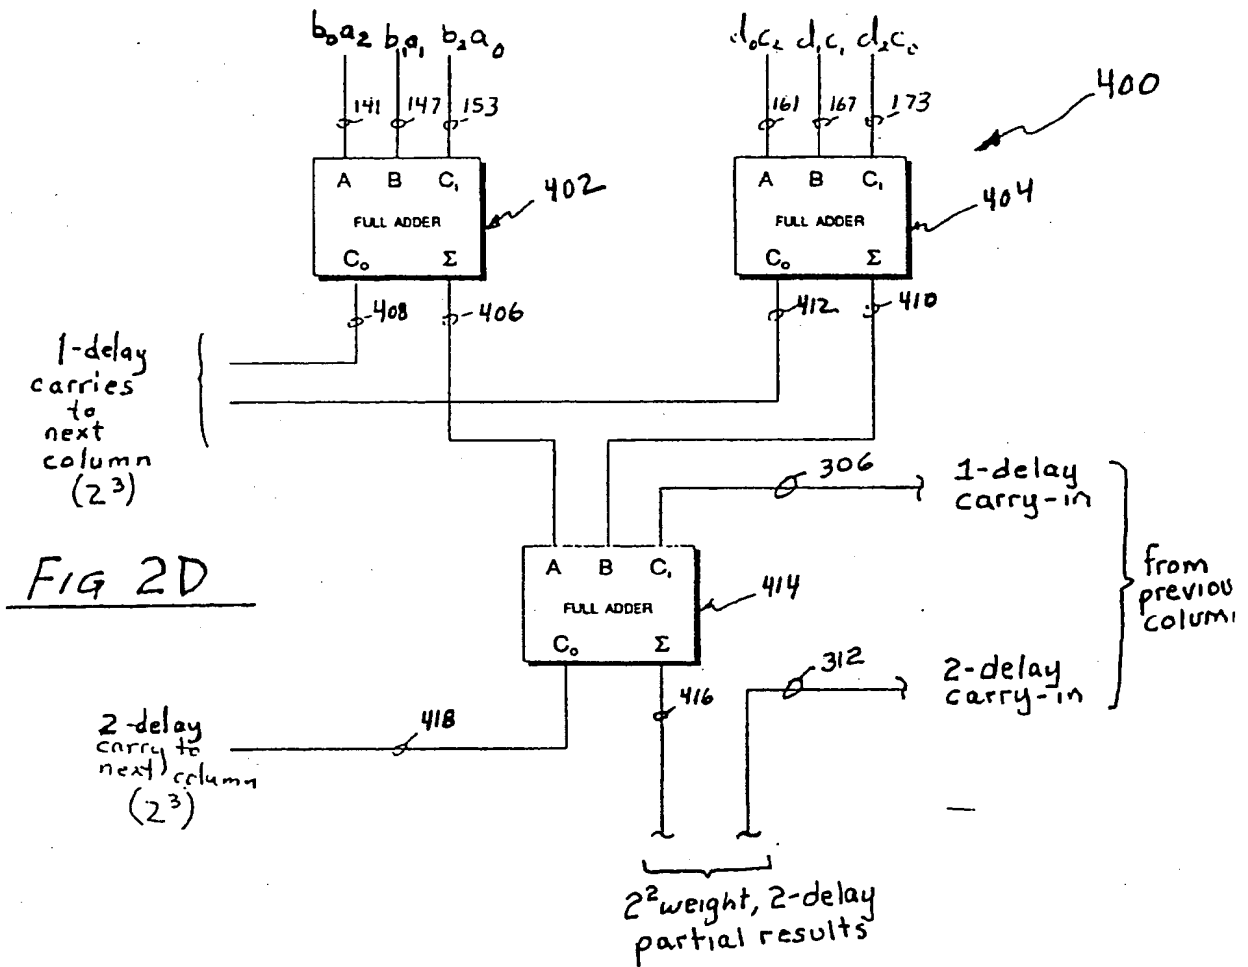 b₀a₂ b₁a₁ b₂a₀
d₀c₂ d₁c₁ d₂c₀
141 147 153
161 167 173
400
A B C₁
FULL ADDER
C₀ Σ
402
A B C₁
FULL ADDER
C₀ Σ
404
408 406
412 410
1-delay
carries
to
next
column
(2³)
306
1-delay
carry-in
FIG 2D
A B C₁
FULL ADDER
C₀ Σ
414
from
previou
colum
312
2-delay
carry-in
416
418
2-delay
carry to
next column
(2³)
2² weight, 2-delay
partial results